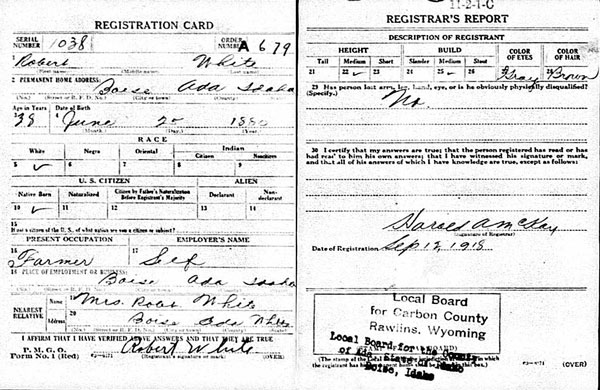 REGISTRATION CARD
SERIAL NUMBER 1038
ORDER NUMBER A 679
1 Robert White
(First name) (Middle name) (Last name)
2 PERMANENT HOME ADDRESS:
Boise Ada Idaho
(No.) (Street or R. F. D. No.) (City or town) (County) (State)
Age in Years Date of Birth
38 June 2 1880
(Month) (Day) (Year)
RACE
White Negro Oriental Indian
Citizen Noncitizen
5 ✓ 6 7 8 9
U. S. CITIZEN ALIEN
Native Born Naturalized Citizen by Father's Naturalization Before Registrant's Majority Declarant Non-declarant
10 ✓ 11 12 13 14
15
If not a citizen of the U. S., of what nation are you a citizen or subject?
PRESENT OCCUPATION EMPLOYER'S NAME
16 Farmer 17 Self
18 PLACE OF EMPLOYMENT OR BUSINESS:
Boise Ada Idaho
(No.) (Street or R. F. D. No.) (City or town) (County) (State)
NEAREST RELATIVE
Name 19 Mrs. Robt White
Address 20 Boise Ada White
(No.) (Street or R. F. D. No.) (City or town) (County) (State)
I AFFIRM THAT I HAVE VERIFIED ABOVE ANSWERS AND THAT THEY ARE TRUE
P. M. G. O.
Form No. 1 (Red)
Robert White
(Registrant's signature or mark) (OVER)
11-2-1-C
REGISTRAR'S REPORT
DESCRIPTION OF REGISTRANT
HEIGHT BUILD COLOR OF EYES COLOR OF HAIR
Tall Medium Short Slender Medium Stout
21 22 ✓ 23 24 25 ✓ 26 27 Gray 28 Brown
29 Has person lost arm, leg, hand, eye, or is he obviously physically disqualified?
(Specify.) No.
30 I certify that my answers are true; that the person registered has read or has had read to him his own answers; that I have witnessed his signature or mark, and that all of his answers of which I have knowledge are true, except as follows:
Harold A McKay
(Signature of Registrar)
Date of Registration Sep 12, 1918
Local Board
for Carbon County
Rawlins, Wyoming
Local Board for the County
of Ada, State of Idaho
Boise, Idaho
(The stamp of the Local Board
the registrant has
(OVER)